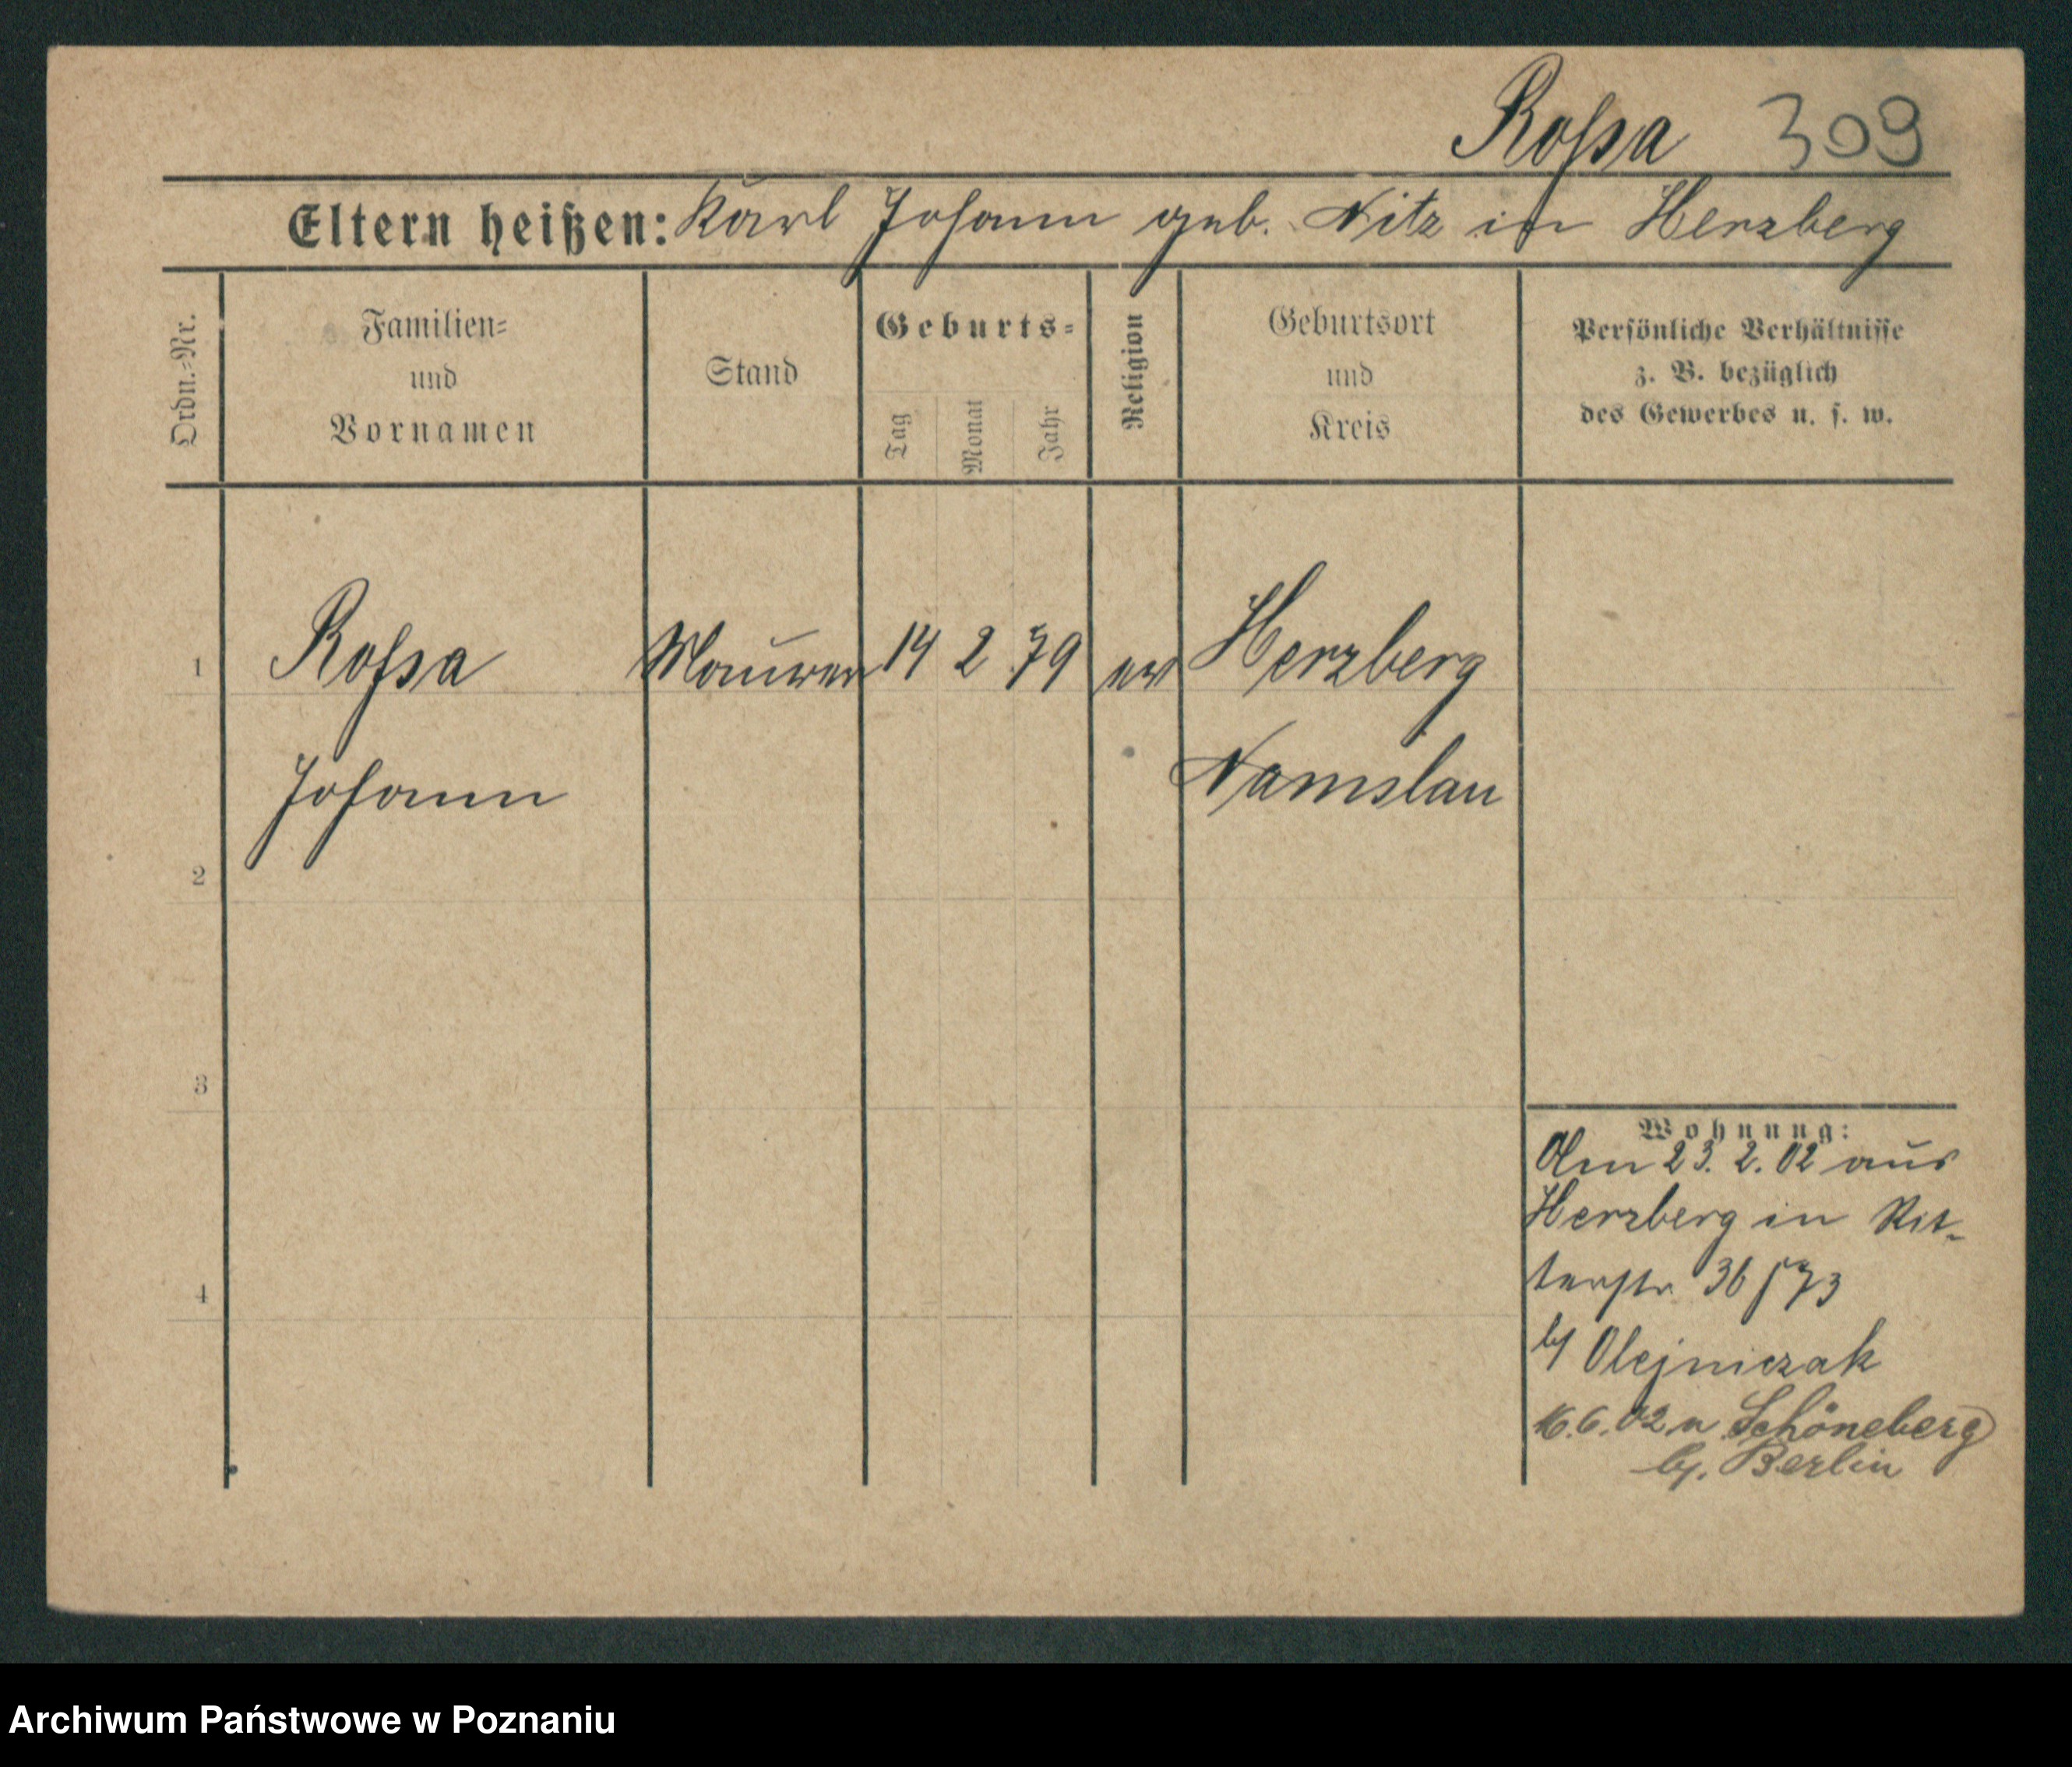 Roſsa 309
Eltern heißen: Karl Johann geb. Nitz in Herzberg
Ordn.-Nr.
Familien-
und
Vornamen
Stand
Geburts-
Tag
Monat
Jahr
Religion
Geburtsort
und
Kreis
Perſönliche Verhältniſſe
z. B. bezüglich
des Gewerbes u. ſ. w.
1 Roſsa Maurer 14 2 79 ev Herzberg
Johann Namslau
2
3
4
Wohnung:
Am 23. 2. 02 aus
Herzberg in Rit-
terstr 36 / 73
bj Olejniczak
16.6.02 n Schöneberg
bj. Berlin
Archiwum Państwowe w Poznaniu